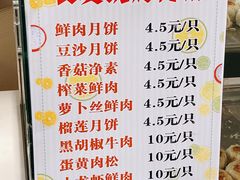 鲜肉月饼 4.5元/只
豆沙月饼 4.5元/只
香菇净素 4.5元/只
榨菜鲜肉 4.5元/只
萝卜丝鲜肉 4.5元/只
榴莲月饼 4.5元/只
黑胡椒牛肉 10元/只
蛋黄肉松 10元/只
小龙虾鲜肉 10元/只